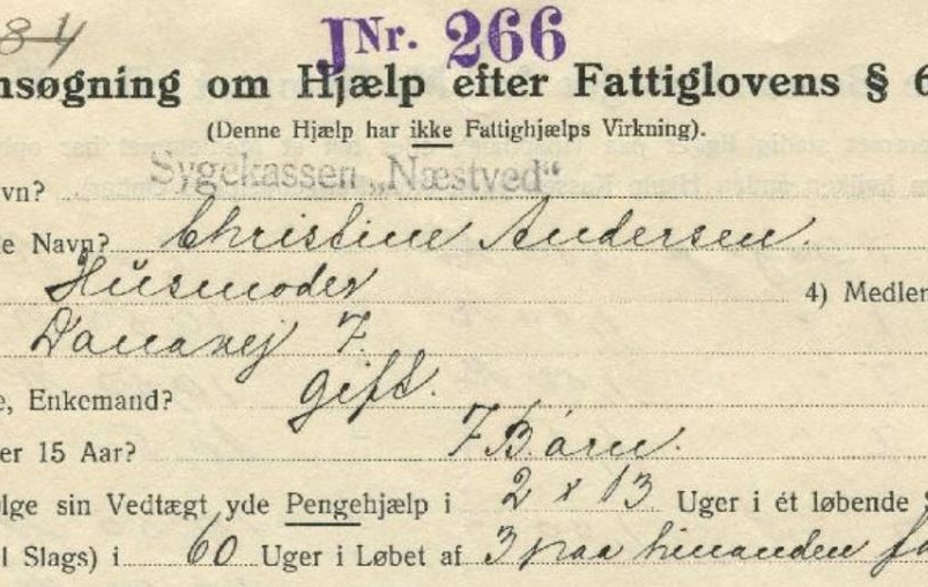 84
JNr. 266
nsøgning om Hjælp efter Fattiglovens § 6
(Denne Hjælp har ikke Fattighjælps Virkning).
vn? Sygekassen „Næstved“
le Navn? Christine Andersen.
Husmoder 4) Medlem
Danavej 7.
e, Enkemand? gift.
er 15 Aar? 7 Børn.
lge sin Vedtægt yde Pengehjælp i 2 x 13 Uger i ét løbende
l Slags) i 60 Uger i Løbet af 3 paa hinanden